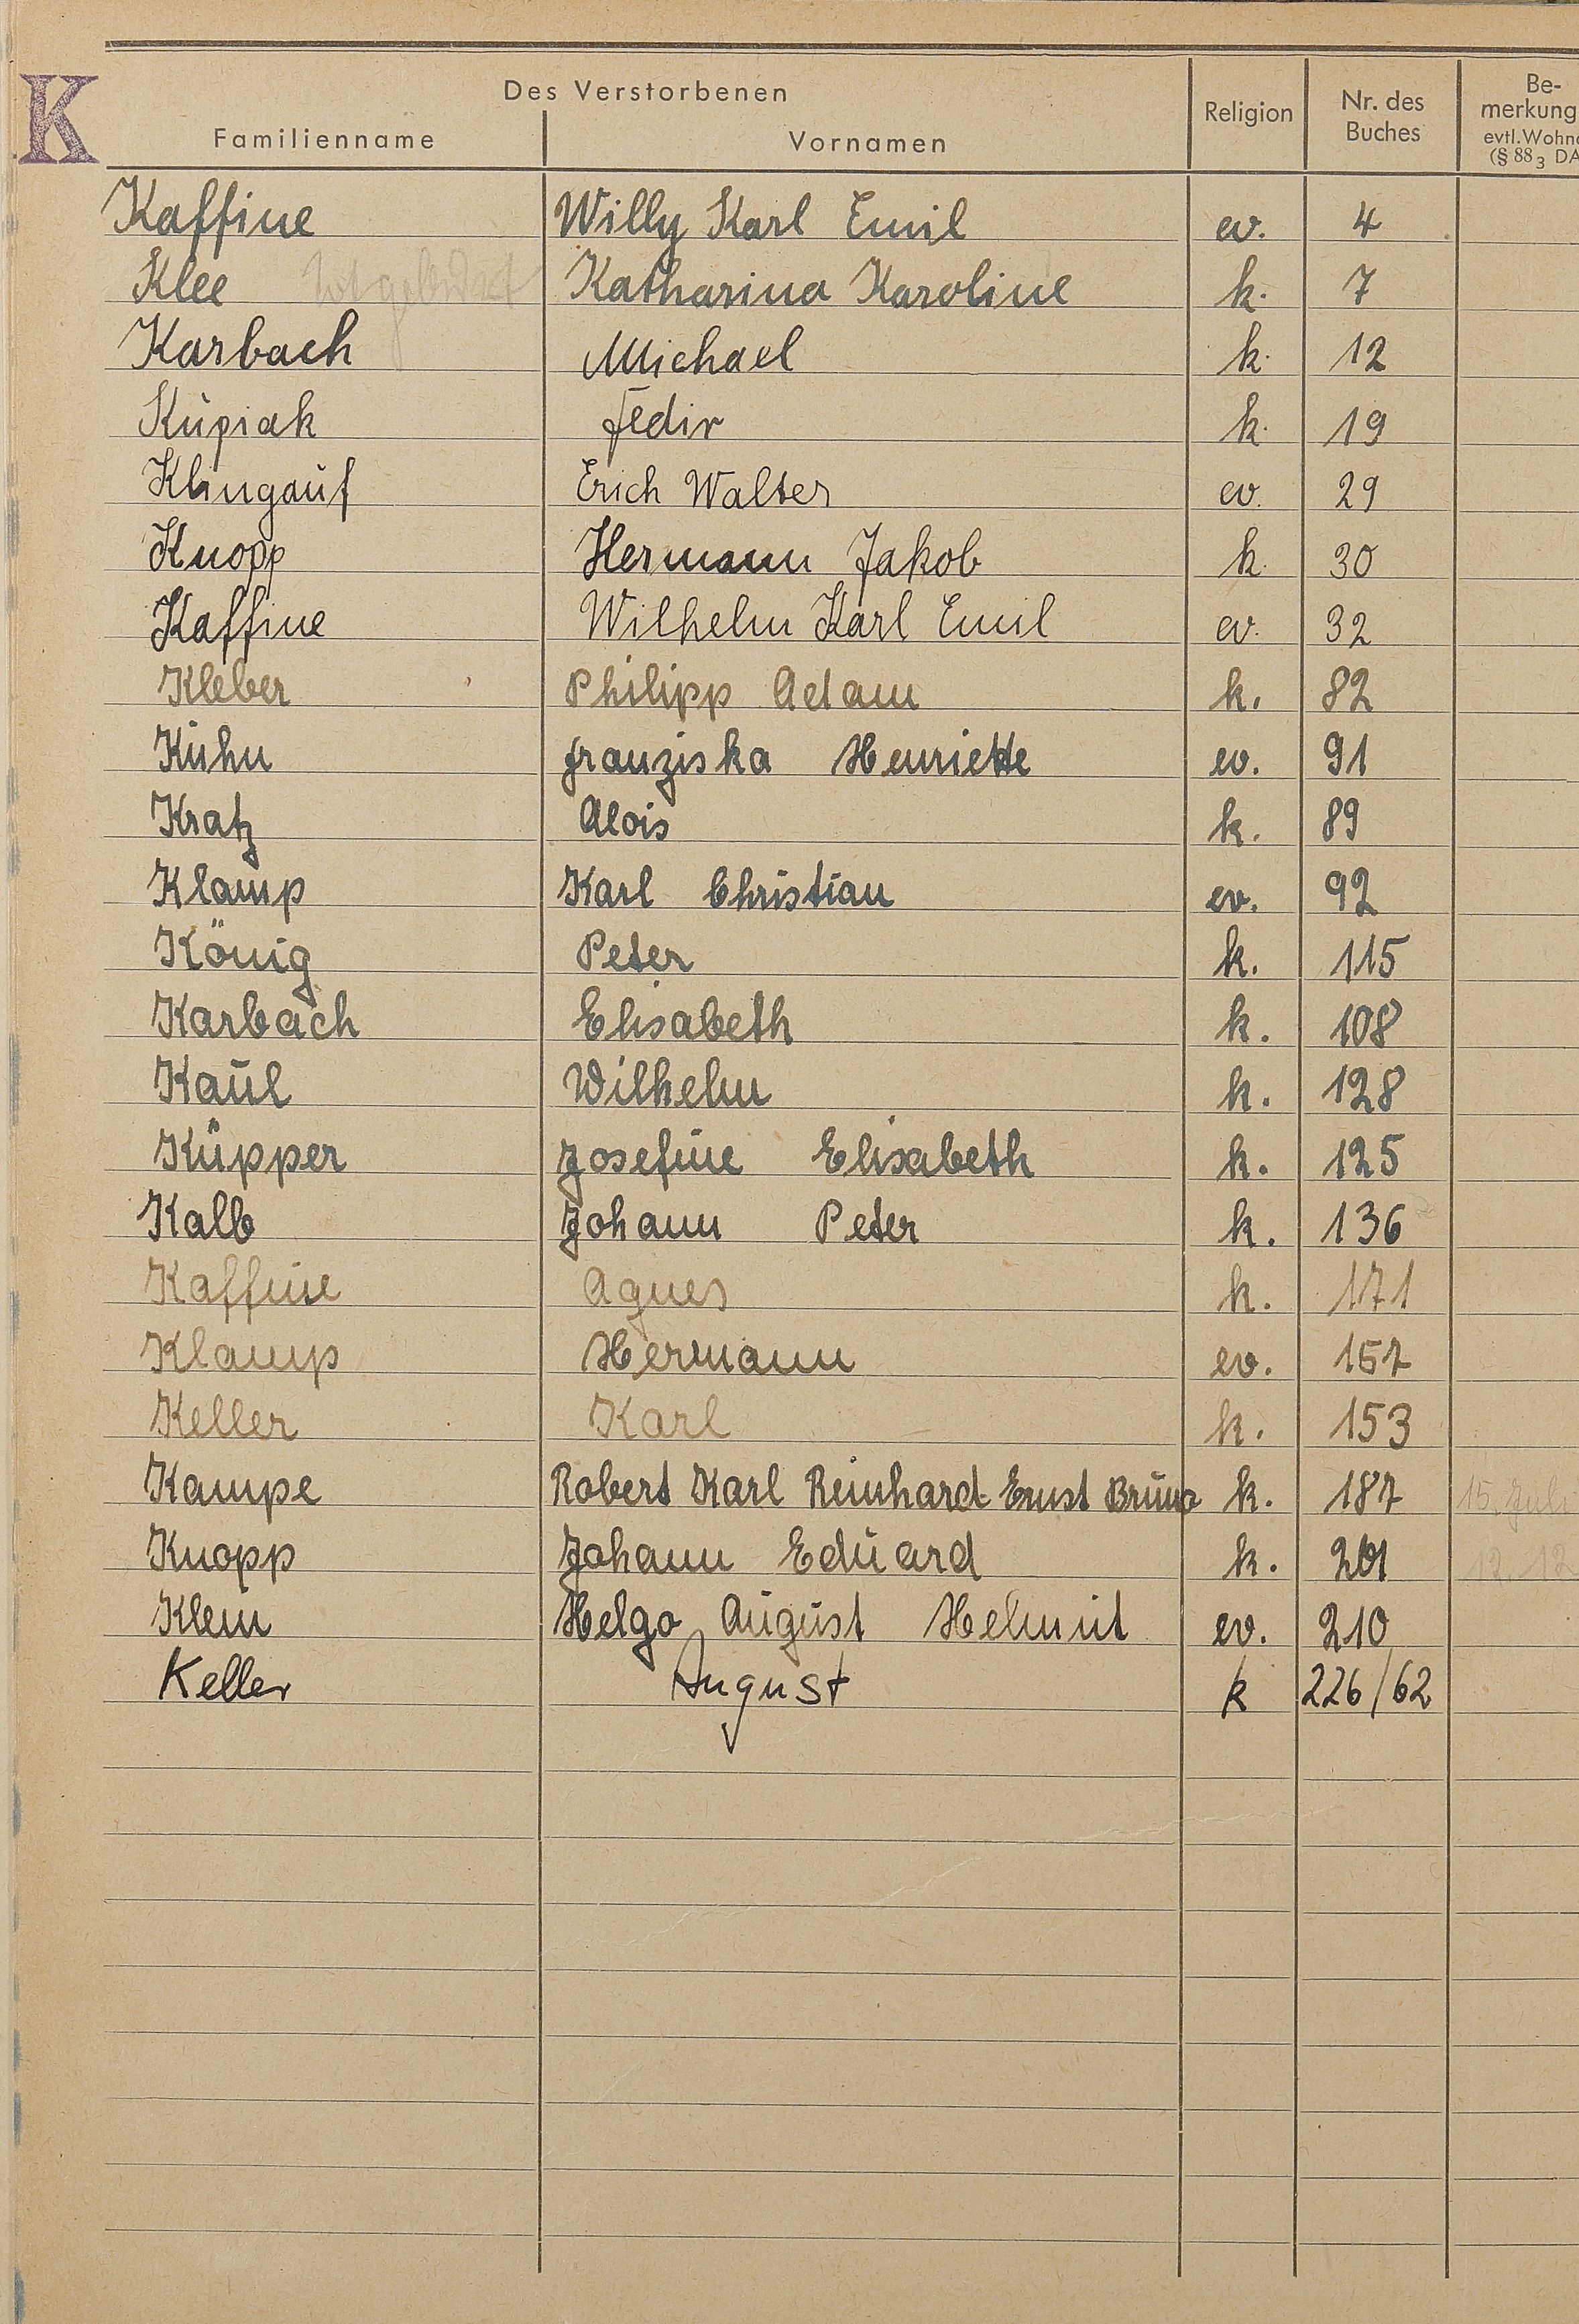 K
Des Verstorbenen
Familienname Vornamen Religion Nr. des Buches Be-
merkung
evtl. Wohn
(§ 88 3 DA
Kaffine Willy Karl Emil ev. 4
Klee Katharina Karoline k. 7
Karbach Michael k. 12
Kupiak Fedir k. 19
Klingauf Erich Walter ev. 29
Knopp Hermann Jakob k. 30
Kaffine Wilhelm Karl Emil ev. 32
Kleber Philipp Adam k. 82
Kuhn Franziska Henriette ev. 91
Kratz Alois k. 89
Klamp Karl Christian ev. 92
König Peter k. 115
Karbach Elisabeth k. 108
Kaul Wilhelm k. 128
Küpper Josefine Elisabeth k. 125
Kalb Johann Peter k. 136
Kaffine Agnes k. 171
Klamp Hermann ev. 157
Keller Karl k. 153
Kampe Robert Karl Reinhard Ernst Bruno k. 187 15. Juli
Knopp Johann Eduard k. 201 12. 12
Klein Helgo August Helmut ev. 210
Keller August k 226/62